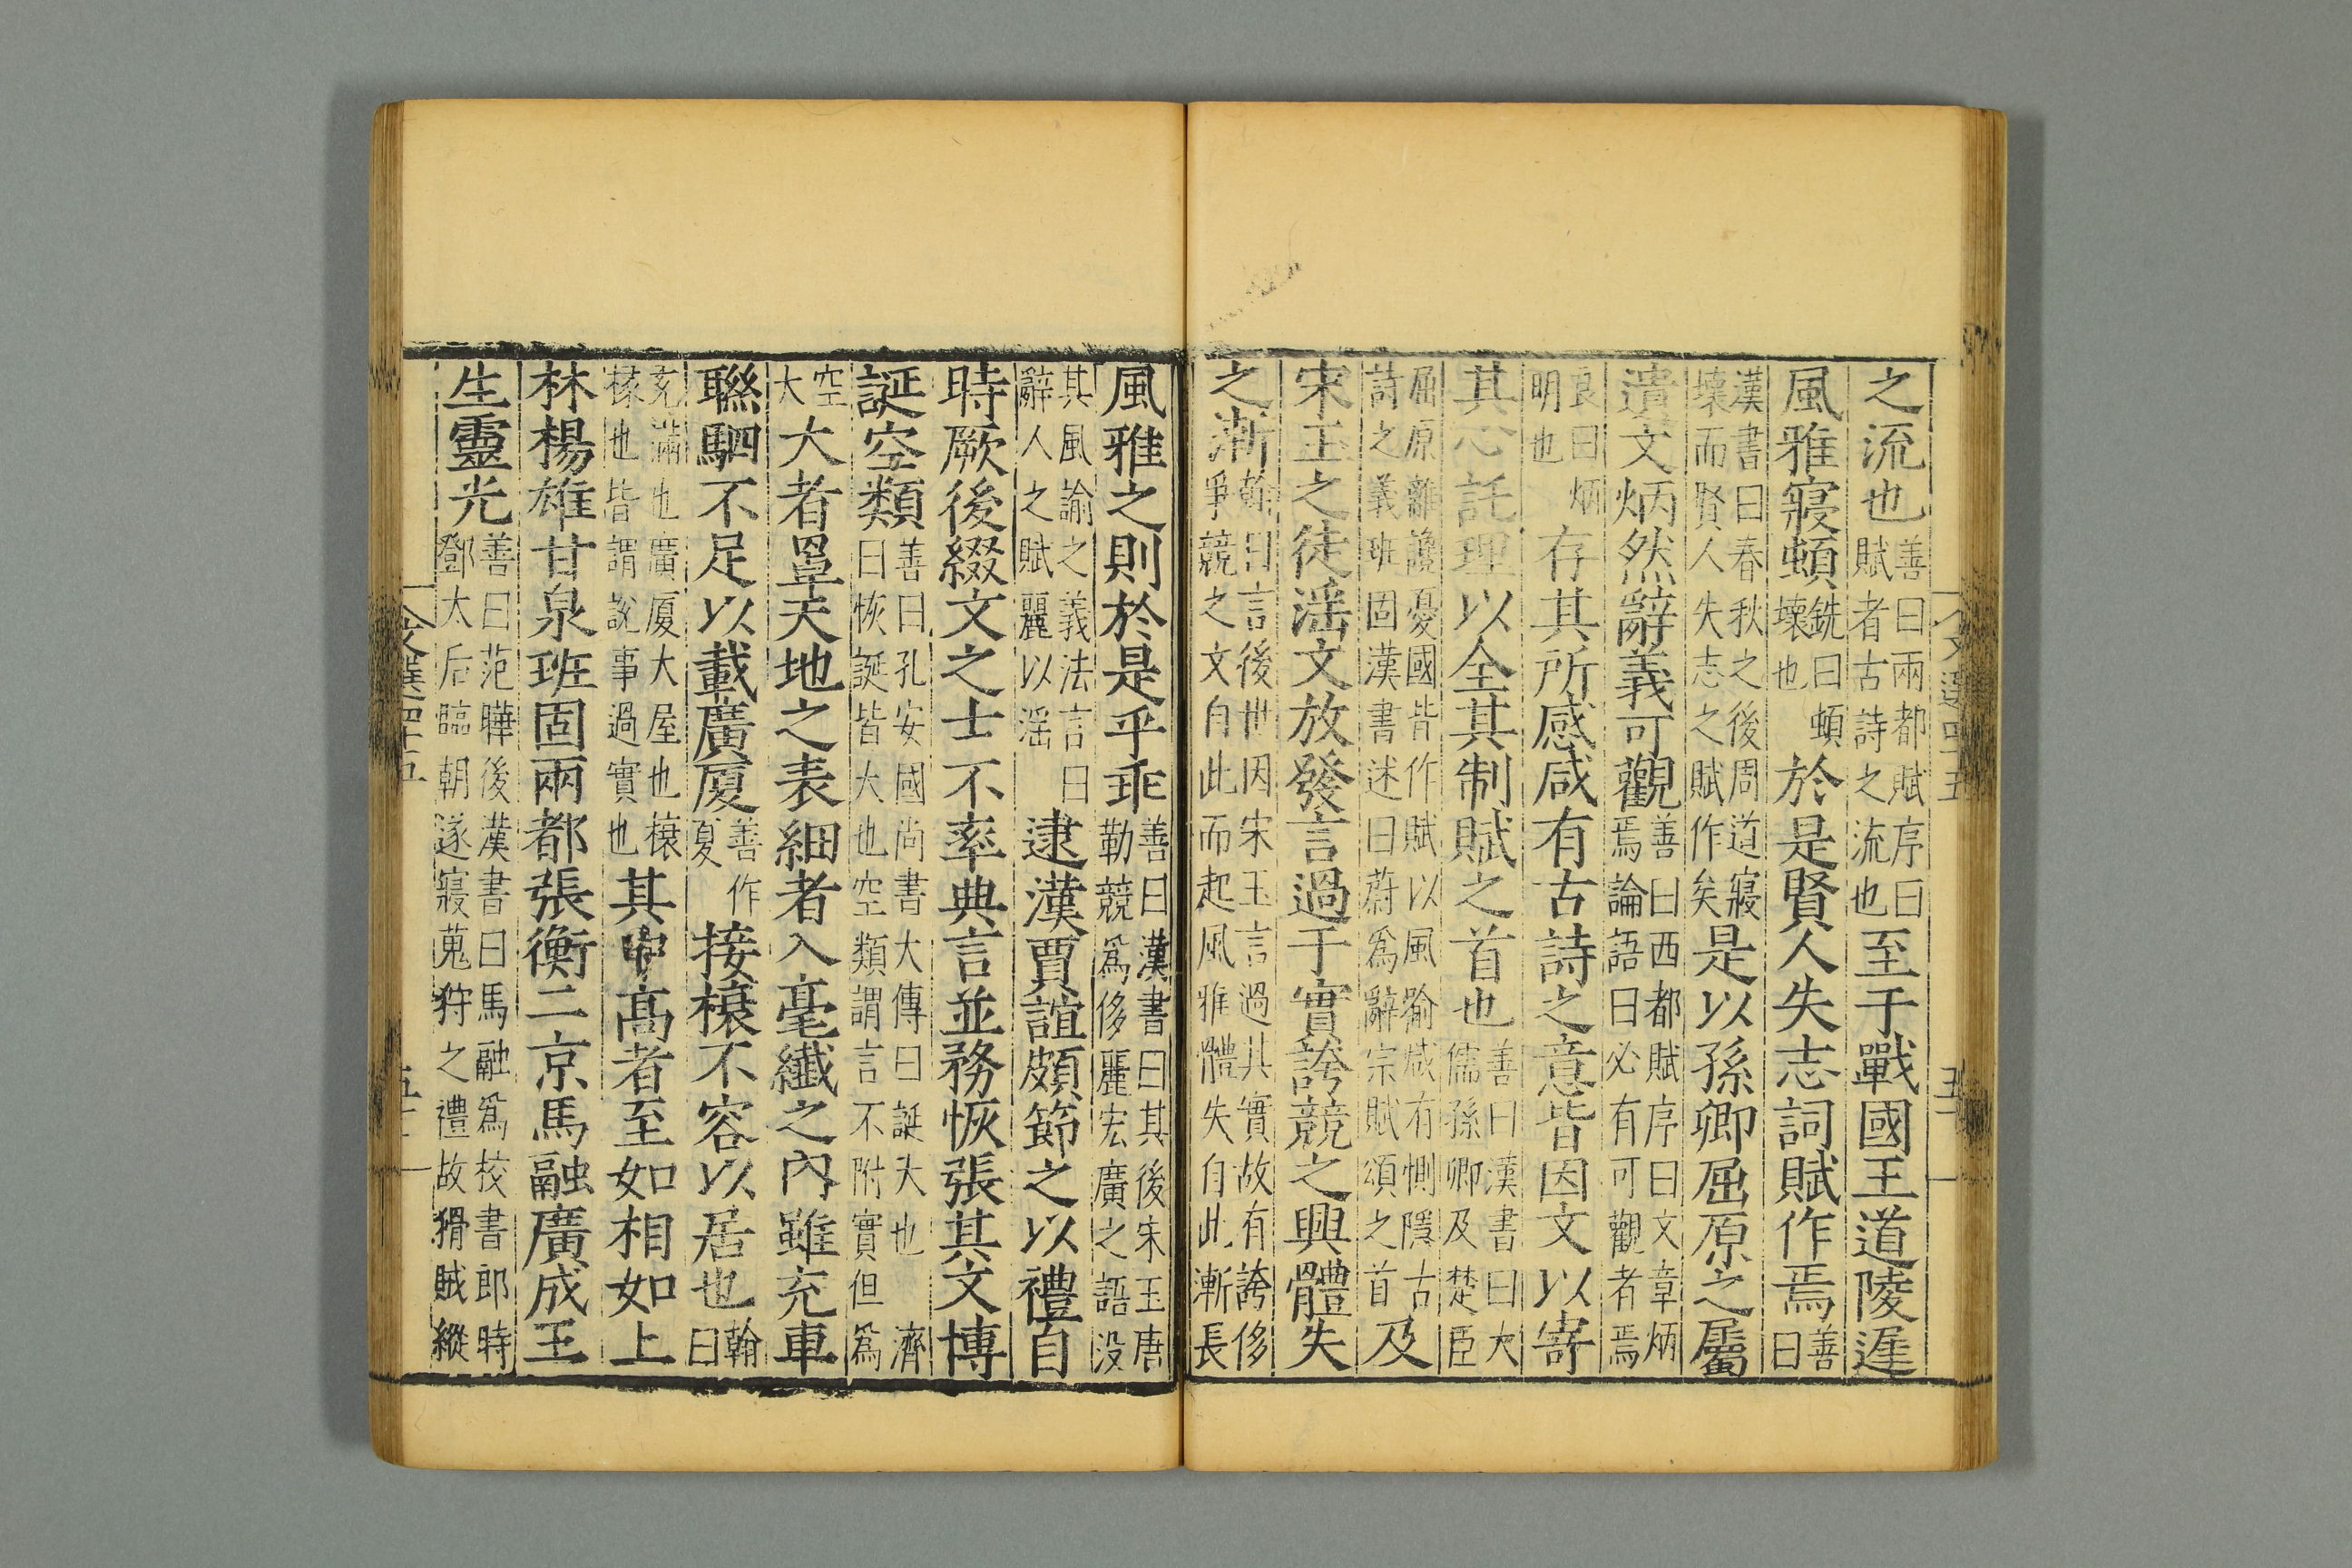 之流也善曰兩都賦序曰賦者古詩之流也至于戰國王道陵遲
風雅寢頓銑曰頓壞也於是賢人失志詞賦作焉善曰
漢書曰春秋之後周道寢壞而賢人失志之賦作矣是以孫卿屈原之屬
遺文炳然辭義可觀善曰西都賦序曰文章炳焉論語曰必有可觀者焉
良曰炳明也存其所感咸有古詩之意皆因文以寄
其心託理以全其制賦之首也善曰漢書曰大儒孫卿及楚臣
屈原離讒憂國皆作賦以風喻咸有惻隱古詩之義班固漢書述曰蔚爲辭宗賦頌之首及
宋玉之徒滛文放發言過于實誇競之興體失
之漸翰曰言後世因宋玉言過其實故有誇侈爭競之文自此而起風雅體失自此漸長
風雅之則於是乎乖善曰漢書曰其後宋玉唐勒競爲侈麗宏廣之語没
其風諭之義法言曰辭人之賦麗以滛逮漢賈誼頗節之以禮自
時厥後綴文之士不率典言並務恢張其文博
誕空類善曰孔安國尚書大傳曰誕大也濟曰恢誕皆大也空類謂言不附實但爲
空大大者罩天地之表細者入毫纖之內雖充車
聯駟不足以載廣廈善作夏接榱不容以居也翰曰
充滿也廣厦大屋也榱椽也皆謂說事過實也其中高者至如相如上
林楊雄甘泉班固兩都張衡二京馬融廣成王
生靈光善曰范曄後漢書曰馬融爲校書郎時鄧太后臨朝遂寢蒐狩之禮故猾賊縱
文選四十五